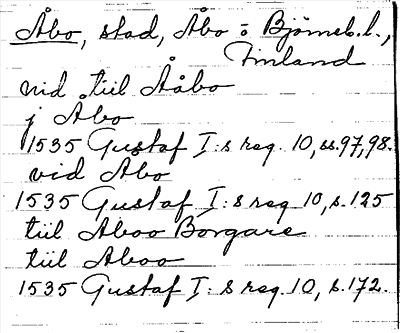 Åbo, stad, Åbo o Björneb. l.,
Finland
vid, tiil Ååbo
j Abo
1535 Gustaf I:s reg. 10, ss. 97, 98.
vid Abo
1535 Gustaf I:s reg 10, s. 125
tiil Aboo Borgare
tiil Aboo
1535 Gustaf I:s reg. 10, s. 172.